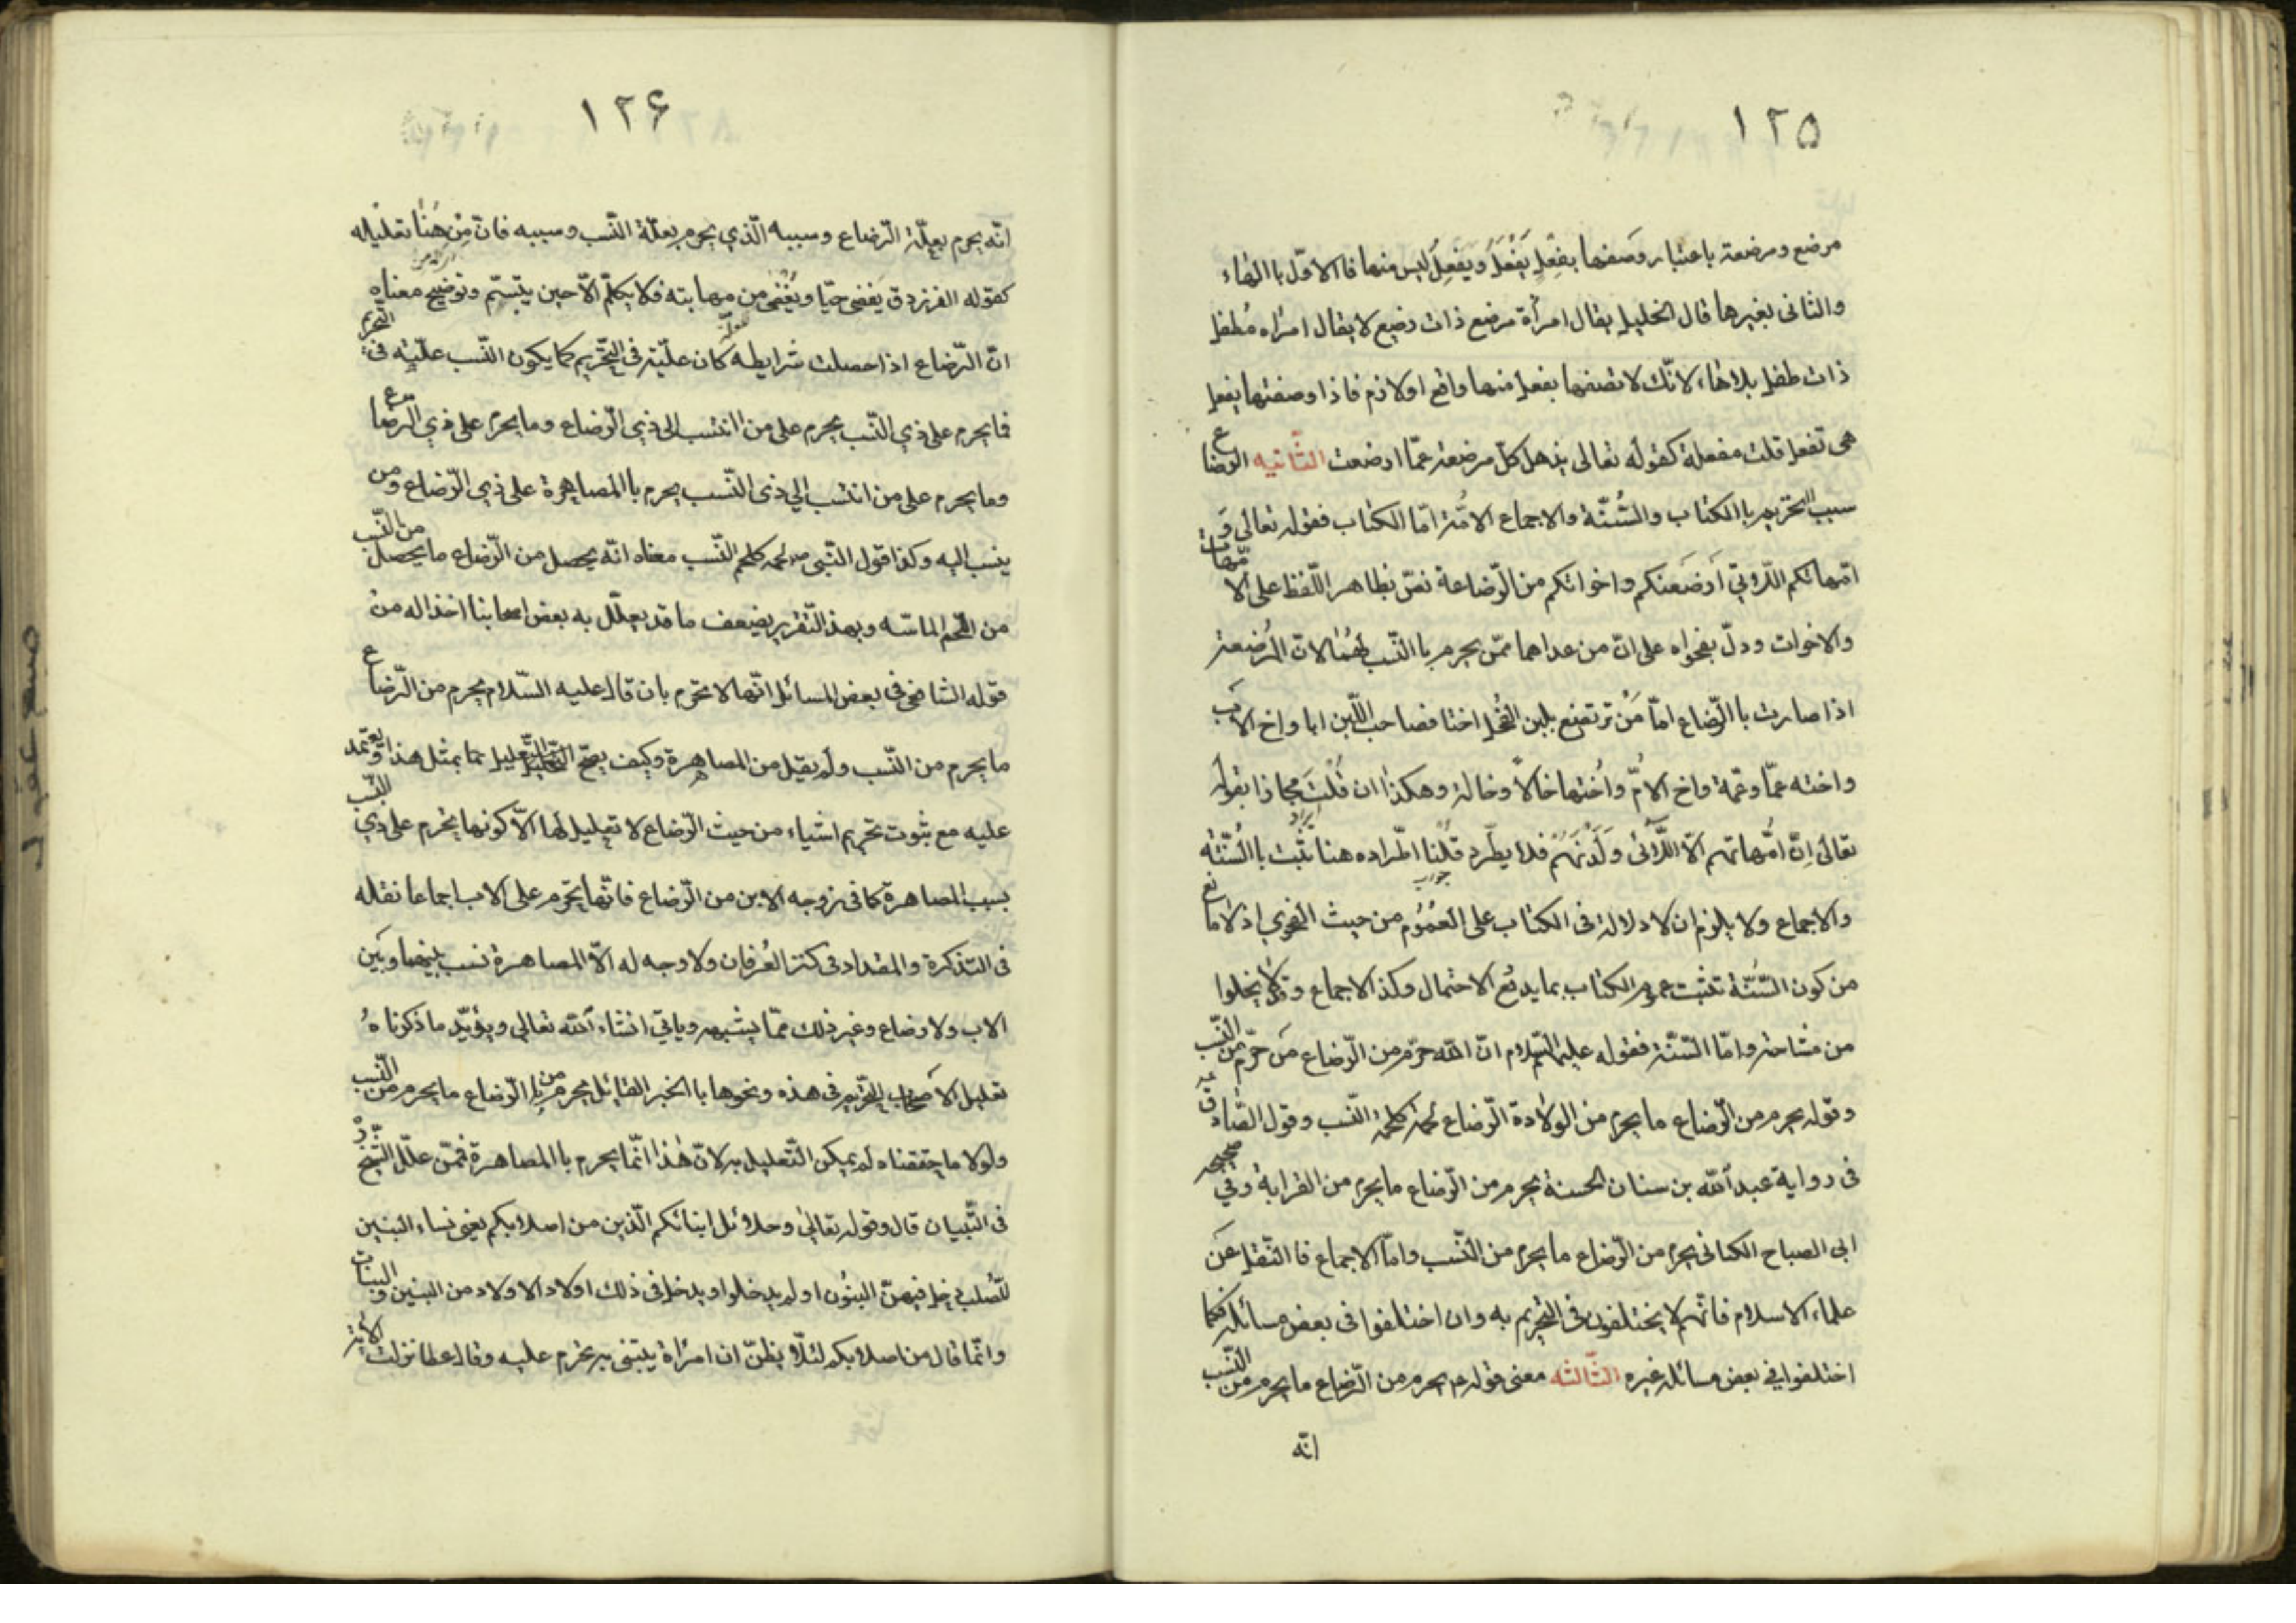 ١٢٥
مرضع ومرضعة باعتبار وصفها بفعل يَفْعَلُ ويَفْعِلُ ليس منها فاالاوّل باالهاء
والثانى بغيرها قال الخليل يقال امرأة مرضع ذات رضيع لا يقال امراه مُطفل
ذات طفل بلاهاء لانّك لا تصفها بفعل منها واقع او لازم فاذا وصفتها بفعل
هى تفعل قلت مفعلة كقوله تعالى يذهل كلّ مرضعة عمّا ارضعت الثّانيه الرّضاع
سبب التّحريم باالكتاب والسّنّة والاجماع الامّة امّا الكتاب فقوله تعالى وَ
امّهاتكم اللّاتي اَرضَعنكم واخواتكم من الرّضاعة نصّ بظاهر اللّفظ على الامّهات
والاخوات ودلّ بفحواه على انّ من عداهما ممّن يحرم باالنّسب لانّ المُرضعة
اذا صارت باالرّضاع امّا مَنْ ترتضع بلبن الفحل اختا فصاحب اللّبن ابا واخ الاب
واخته عمّا وعمّة واخ الامّ واُختها خالاً وخالة وهكذا ان قُلْتَ مجازا بقوله
تعالىٰ اِنّ اُمّهاتهم الاّ اللّآئى وَلَدْنَهُمْ فلا يطّرد قُلنا اطّراده هنا ثبت باالسّنّة
والاجماع ولا يلزم ان لا دلالة فى الكتاب على العُمُوم من حيث الفحوي اذ لا مانع
من كون السّنّة تثبت عموم الكتاب بما يدفع الاحتمال وكذ الاجماع ولا يخلوا
من مشاحة وامّا السّنّة فقوله عليه السّلام انّ الله حرّم من الرّضاع مَا حرّم من النّسب
وقوله يحرم من الرّضاع ما يحرم من الولادة الرّضاع لحمة كلحمة النّسب وقول الصّادق ع
فى رواية عبد الله بن سنان الحسنة يحرم من الرّضاع ما يحرم من القرابة وفي صحيحه
ابى الصباح الكنانى يحرم من الرّضاع ما يحرم من النّسب وامّا الاجماع فاالنّقل عن
علماء الاسلام فانّهم لا يختلفون فى التّحريم به وان اختلفوا فى بعض مسائله فكما
اختلفوا في بعض مسائل غيره الثّالثه معنى قوله ع يحرم من الرّضاع ما يحرم من النّسب
انّه
١٢۶
انّه يحرم بعلّة الرّضاع وسببه الّذي يحرم بعلّة النّسب وسببه فانّ مِنْ هُنا تعليله
كقوله الفرزدق يَغضى حيّا ويُغْضى من مهابته فلا يكلّم الاّ حين يبتسّم وتوضيح معناه
انّ الرّضاع اذا حصلت شرايطه كان علّية فى التّحريم كما يكون النّسب علّيه فى التّحريم
فما يحرم على ذي النّسب يحرم على من انتسب الى ذي الرّضاع وما يحرم على ذي الرّضاع
وما يحرم على من انتسب الي ذى النّسب يحرم باالمصاهرة على ذي الرّضاع ومن
ينسب اليه وكذا قول النّبى ص لحمة كلحم النّسب معناه انّه يحصل من الرّضاع ما يحصل من النّسب
من اللّحم الماسّه وبهذ التّقرير يضعف ما قد يعلّل به بعض اصحابنا اخذا له من
قوله الشافعى فى بعض المسائل انّها لا تحرّم بان قال عليه السّلام يحرم من الرّضاع
ما يحرم من النّسب ولم يقل من المصاهرة وكيف يصحّ التّعليل بما بمثل هذا ويعتمد
عليه مع ثبوت تحريم اشياء من حيث الرّضاع لا تعليل لها الاّ كونها يحرم على ذي النّسب
بسبب المصاهرة كما فى زوجه الابن من الرّضاع فانّها تحرم على الاب اجماعا نقله
فى التذكرة والمقداد فى كنز العُرفان ولا وجه له الاّ المصاهرة نسب بينهما وبَين
الاب ولا رضاع وغير ذلك ممّا يشبهه وياتى انشاء الله تعالى ويؤيّد ما ذكرناهُ
تعليل الاَصحاب التّحريم فى هذه ونحوها باالخبر القائل يحرم من الرّضاع ما يحرم من النّسب
ولولا ما حققناه لم يمكن التّعليل به لانّ هٰذا انّما يحرم باالمصاهرة فمّمن علّل الشّيخ ره
فى التّبيان قال وقوله تعالىٰ وحلائل ابنائكم الّذين من اصلابكم يعنى نساء البنين
للصُلب دخل فيهنّ البنُون او لم يدخلوا ويدخل فى ذلك اولاد الاولاد من البنين والبنات
وانّما قال من اصلابكم لئلّا يظنّ ان امرأة يتبنى به تحرم عليه وقال عطا نزلت الاٰية